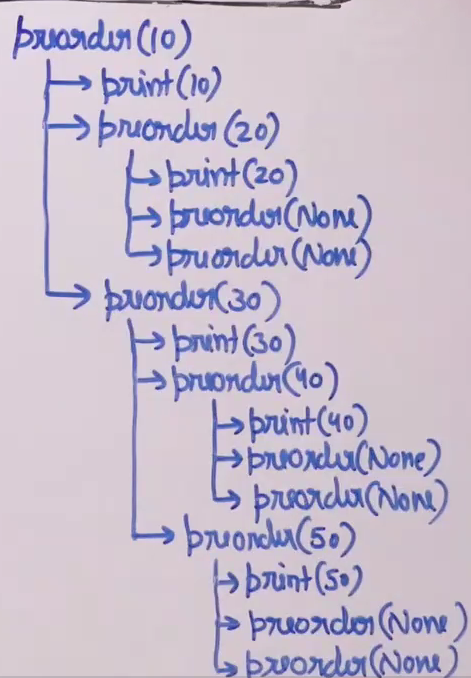 preorder(10)
print(10)
preorder(20)
print(20)
preorder(None)
preorder(None)
preorder(30)
print(30)
preorder(40)
print(40)
preorder(None)
preorder(None)
preorder(50)
print(50)
preorder(None)
preorder(None)